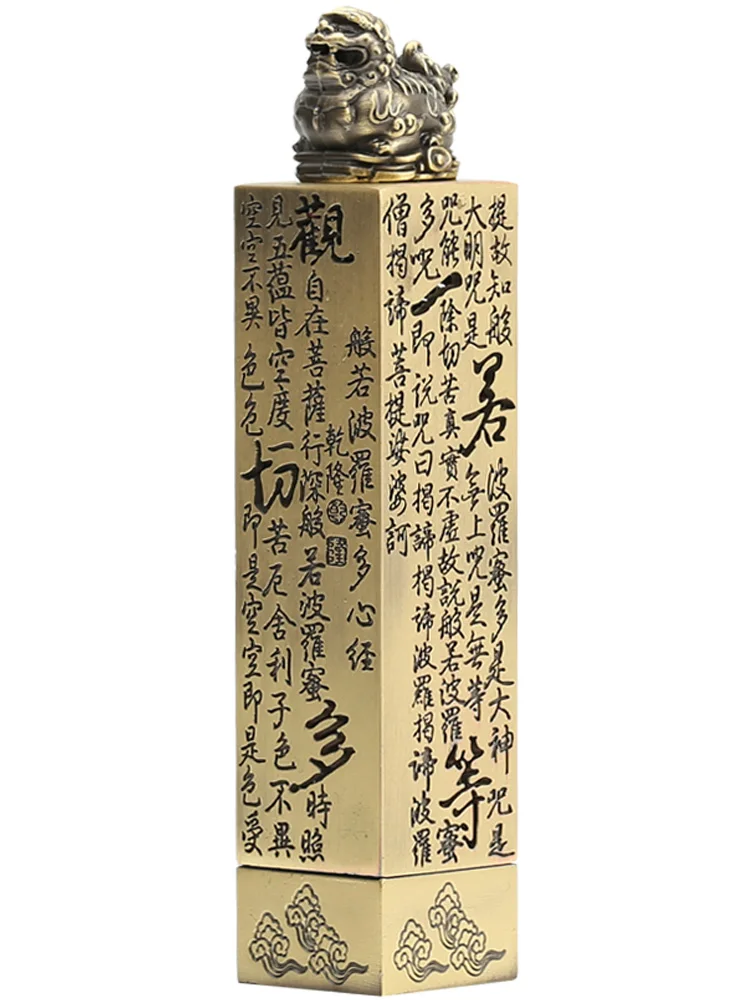 般若波羅蜜多心經
乾隆
觀自在菩薩行深般若波羅蜜多時照
見五蘊皆空度一切苦厄舍利子色不異
空空不異色色即是空空即是色受
提故知般若波羅蜜多是大神咒是
大明咒是無上咒是無等等
咒能除一切苦真實不虛故說般若波羅蜜
多咒即說咒曰揭諦揭諦波羅揭諦波羅
僧揭諦菩提娑婆訶